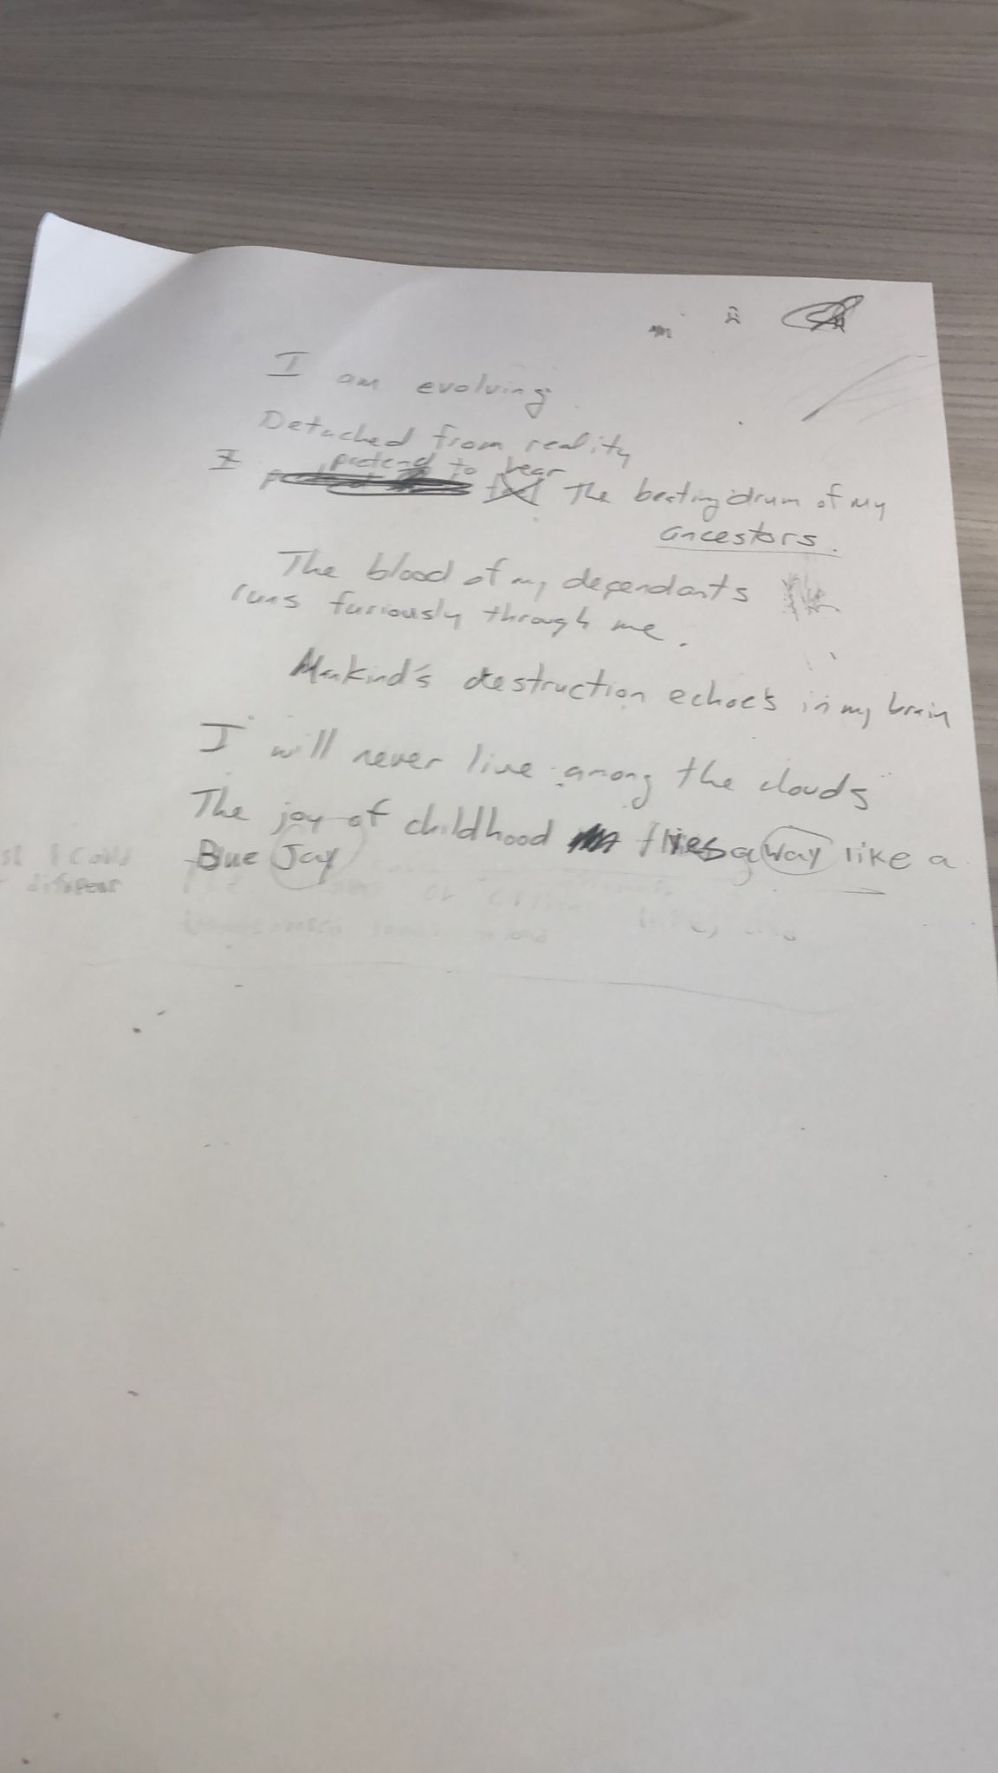 I am evolving
Detached from reality
I pretend to hear The beating drum of my
ancestors.
The blood of my dependants
runs furiously through me.
Mankind's destruction echoes in my brain
I will never live among the clouds
The joy of childhood flies away like a
Blue Jay
I could
different
or